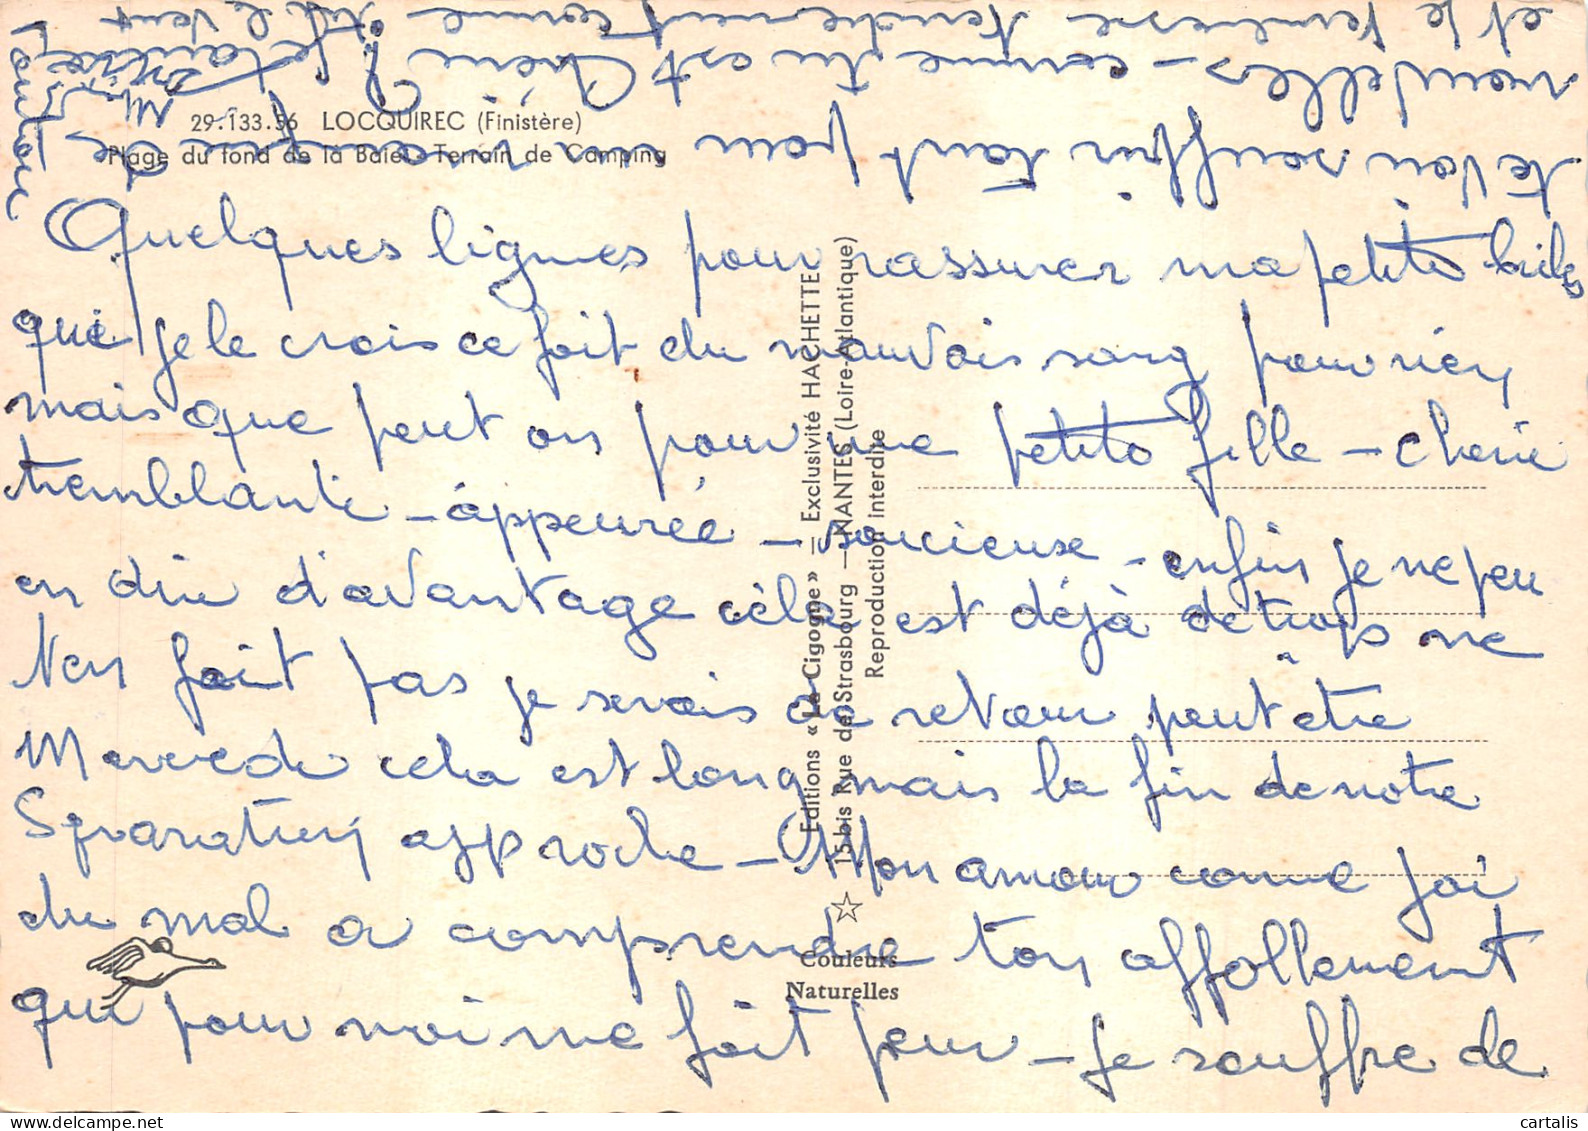 29.133.56 LOCQUIREC (Finistère)
Plage du fond de la Baie - Terrain de Camping
Quelques lignes pour rassurer ma petite
que je le crois ce fait du mauvais sang pour rien
mais que peut on pour une petite fille - cherie
tremblante - appeurée - soucieuse - enfin je ne peu
en dire d'avantage cela est déjà de trops ne
t'en fait pas je serais de retour peut etre
Mercredi cela est long mais la fin de notre
Sparation approche - Mon amour comme j'ai
du mal a comprendre ton affollement
qui pour moi me fait peur - je souffre de
te voir souffrir tant pour un manque de
nouvelles - comme tu est Chérie
et je t'embrasse tendrement comme
je t'aime
Editions « La Cigogne » — Exclusivité HACHETTE
15 bis Rue de Strasbourg — NANTES (Loire-Atlantique)
Reproduction interdite
Couleurs
Naturelles
delcampe.net
cartalis